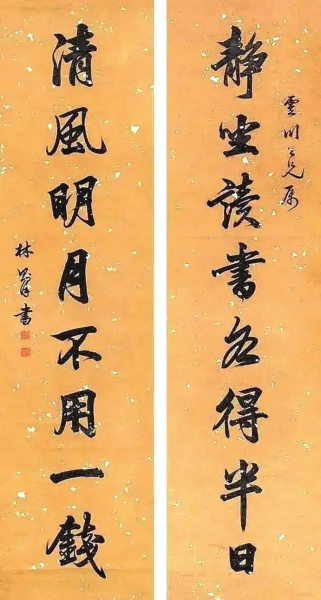 靜坐讀書各得半日
雲川仁兄屬
清風明月不用一錢
林則書